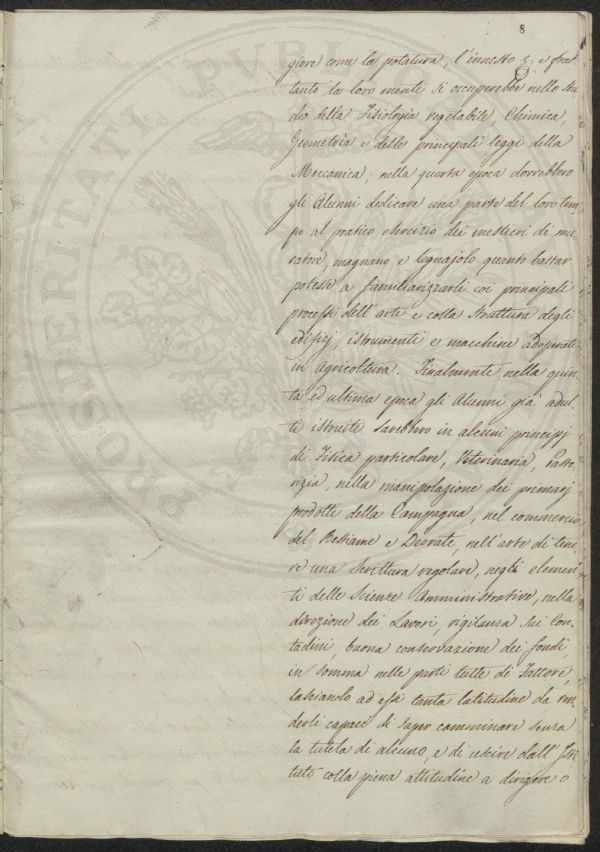 8
giore come la potatura, l'innesto &; e frat
tanto la loro mente si occuperebbe nello Stu
dio della Fisiologia vegetabile, Chimica,
Geometria e delle principali leggi della
Meccanica; nella quarta epoca dovrebbero
gli Alunni dedicare una parte del loro tem
po al pratico esercizio dei mestieri di mu
ratore, magnano, e legnajolo quanto bastar
potesse a familiarizzarli coi principali
processi dell'arte e colla struttura degli
edifizj, istrumenti e macchine adoperate
in Agricoltura. Finalmente nella quin
ta ed ultima epoca gli Alunni già adul
ti istruiti sarebbero in alcuni principj
di Fisica particolare, Veterinaria, Pasto
rizia, nella manipolazione dei primarj
prodotti della Campagna, nel commercio
del Bestiame e Derrate, nell'arte di tene
re una Scrittura regolare, negli elemen
ti delle Scienze Amministrative, nella
direzione dei Lavori, vigilanza sui Con
tadini, buona conservazione dei fondi
in somma nelle parti tutte di Fattore,
lasciando ad essi tanta latitudine da ren
derli capaci di saper camminare senza
la tutela di alcuno, e di uscire dall'Isti
tuto colla piena attitudine a dirigere o
PROSPERITATI PUBLICAE